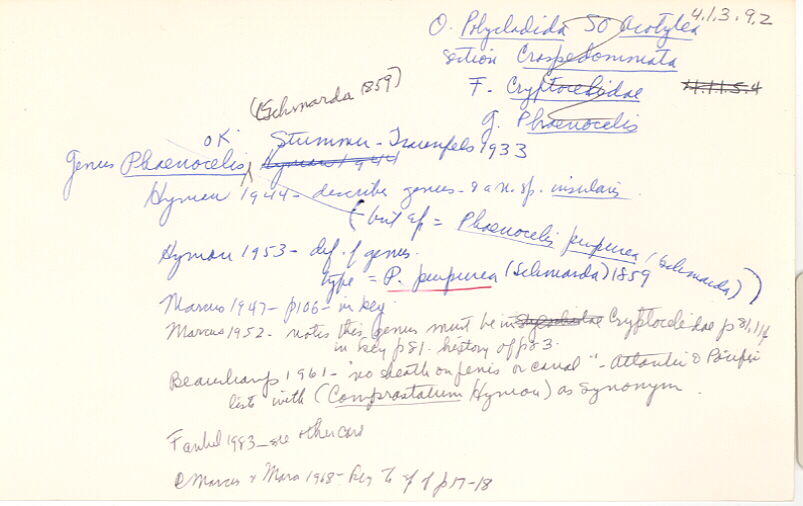 4.1.3.9.2
O. Polycladida SO Acotylea
section Craspedommata
F. Cryptocelidae 4.1.1.5.4
g. Phaenocelis
(Schmarda 1859)
OK Stummer-Traunfels 1933
Genus Phaenocelis, Hyman 1944
Hyman 1944 - describes genus - & a n. sp. insularis
(but sp = Phaenocelis purpurea (Schmarda))
Hyman 1953 - def. of genus.
type = P. purpurea (Schmarda) 1859
Marcus 1947 - p106 - in key.
Marcus 1952 - notes this genus must be in Cryptocelidae p81,
in key p81. history of p83.
Beauchamp 1961 - "no sheath on penis or canal" - Atlantic & Pacific
lists with (Comprostatum Hyman) as synonym.
Faubel 1983 - see other card
E Marcus & Marcus 1968 - key to sp of p17-18